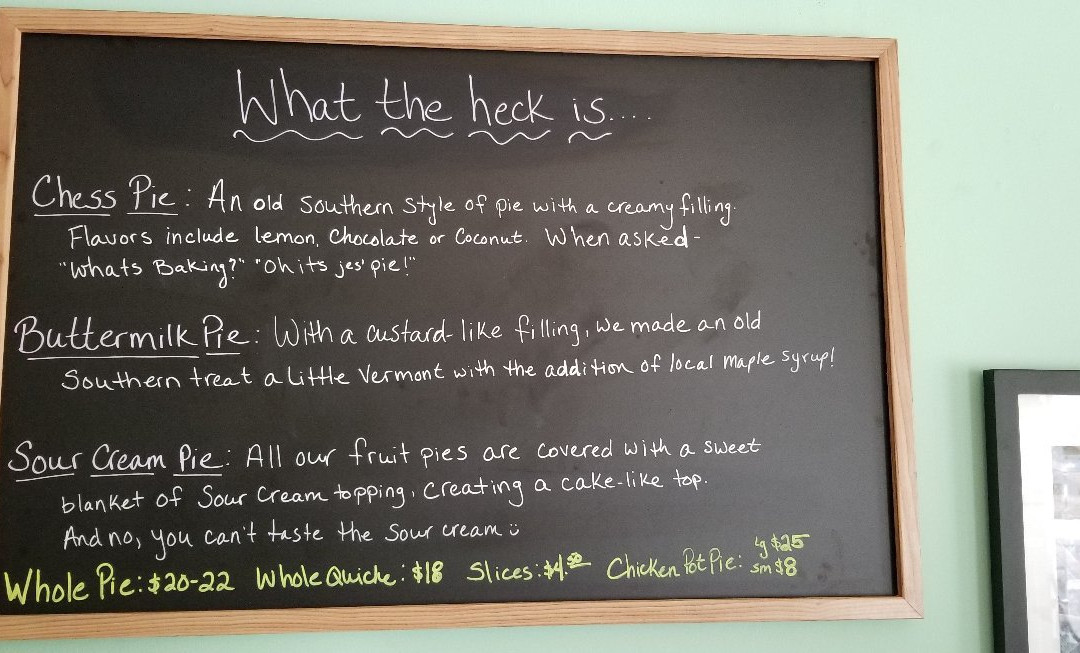 What the heck is....
Chess Pie: An old Southern Style of pie with a creamy filling.
Flavors include lemon, Chocolate or Coconut. When asked-
"Whats Baking?" "Oh its jes' pie!"
Buttermilk Pie: With a custard-like filling, we made an old
Southern treat a little Vermont with the addition of local maple syrup!
Sour Cream Pie: All our fruit pies are covered with a sweet
blanket of Sour Cream topping, creating a cake-like top.
And no, you can't taste the Sour cream ü
Whole Pie: $20-22 Whole Quiche: $18 Slices: $4.00 Chicken Pot Pie: lg $25
sm $8